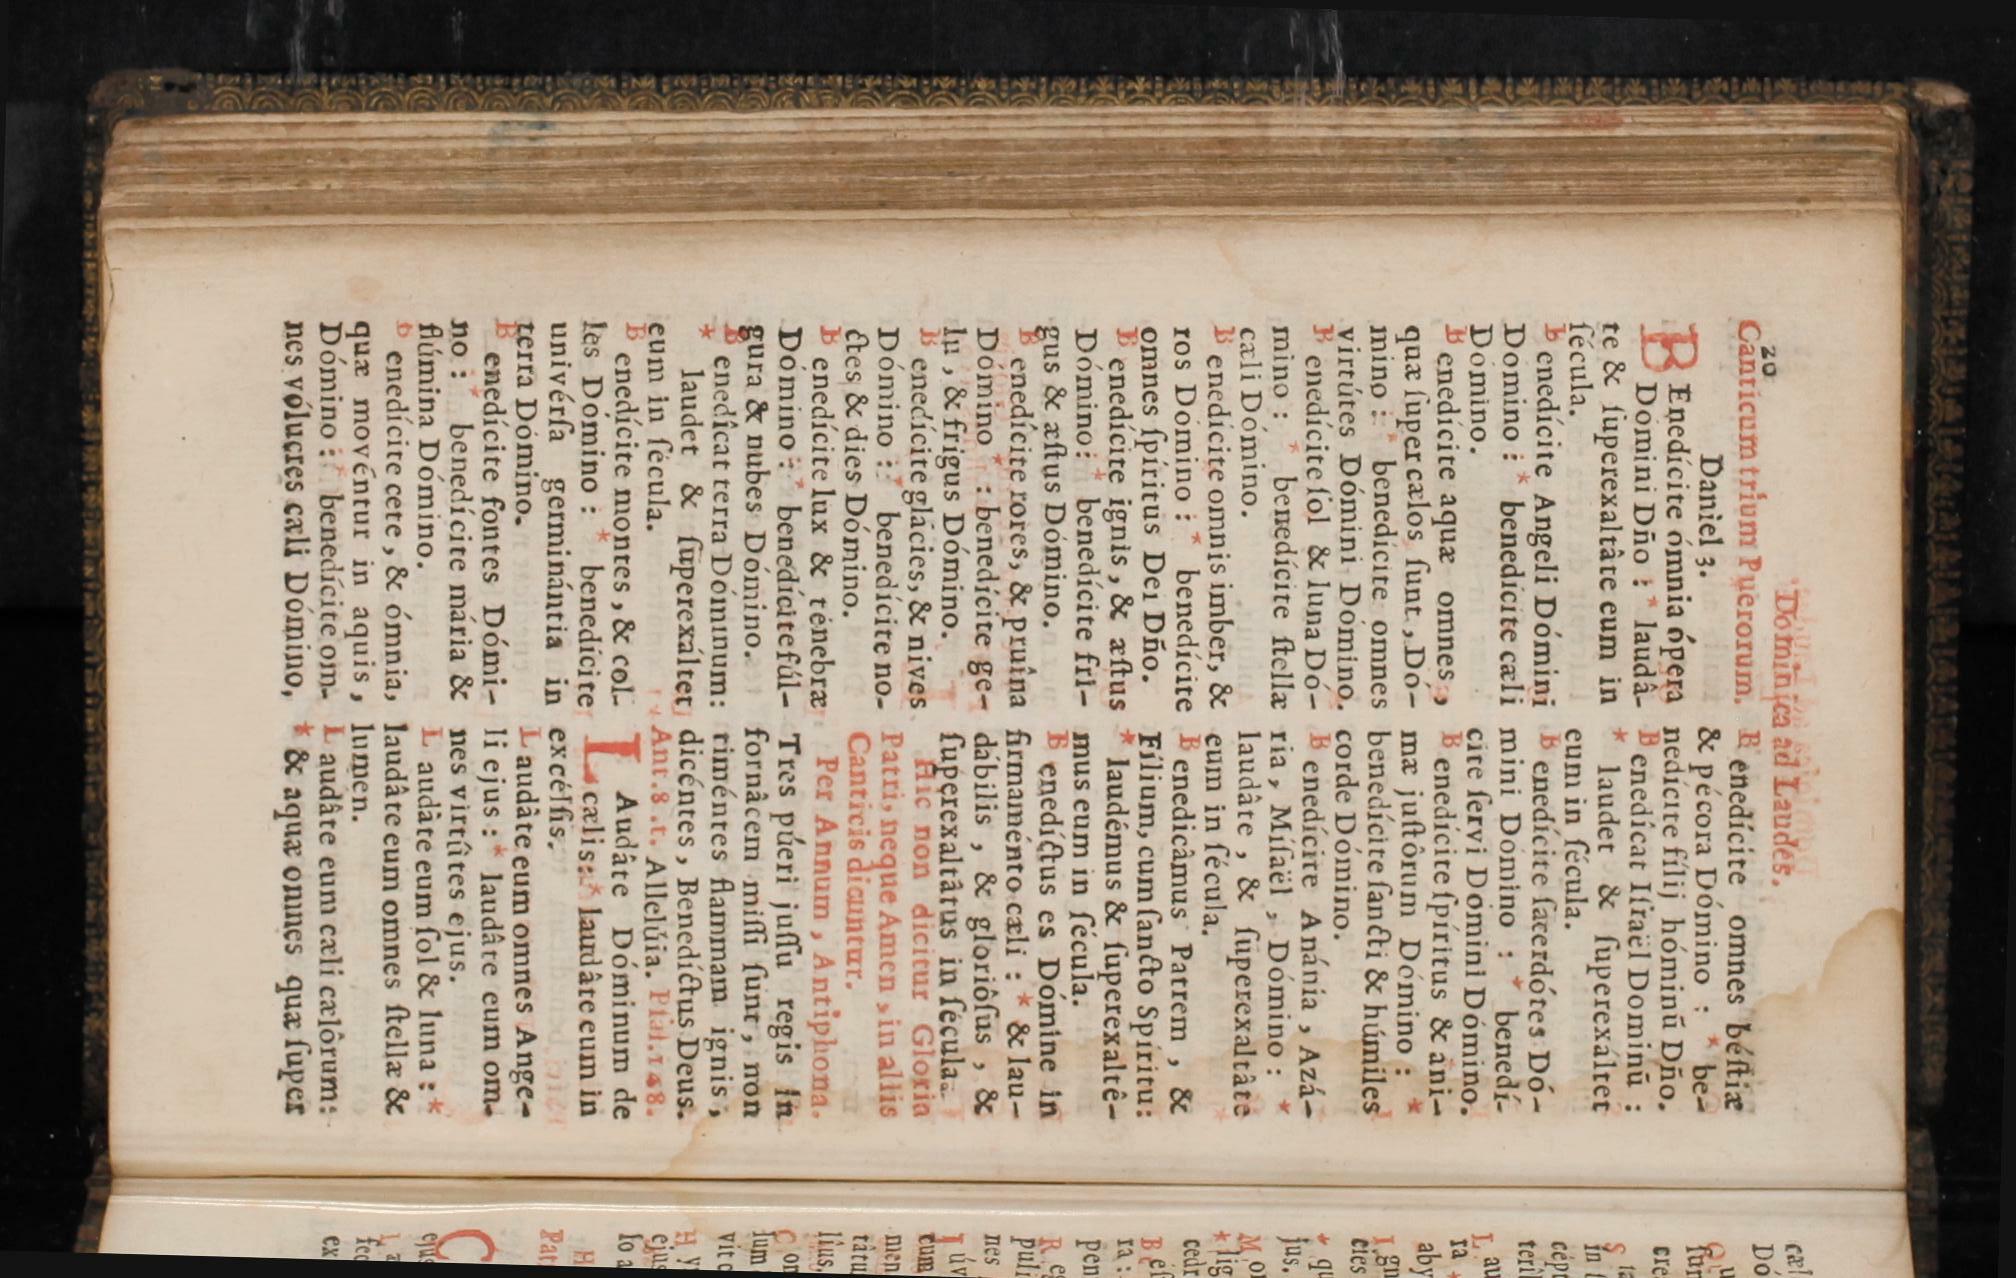 20
Dominica ad Laudes.
Canticum trium Puerorum.
Daniel 3.
BEnedícite ómnia ópera
Domini Dño : * laudâ-
te & ſuperexaltâte eum in
ſécula.
Benedícite Angeli Dómini
Domino : * benedícite cæli
Domino.
Benedícite aquæ omnes,
quæ ſuper cælos ſunt, Dó-
mino : * benedícite omnes
virtútes Dómini Dómino.
Benedícite ſol & luna Dó-
mino : * benedícite ſtellæ
cæli Dómino.
Benedícite omnis imber, &
ros Domino : * benedícite
omnes ſpíritus Dei Dño.
Benedícite ignis, & æſtus
Dómino : * benedícite fri-
gus & æſtus Dómino.
Benedícite rores, & pruîna
Dómino * : benedícite ge-
lu, & frigus Dómino.
Benedícite glácies, & nives
Dómino : * benedícite no-
ctes & dies Dómino.
Benedícite lux & ténebræ
Dómino : * benedícite fúl-
gura & nubes Dómino.
Benedîcat terra Dóminum:
* laudet & ſuperexáltet
eum in ſécula.
Benedícite montes, & col-
les Dómino : * benedícite
univérſa germinántia in
terra Dómino.
Benedícite fontes Dómi-
no : * benedícite mária &
flúmina Dómino.
Benedícite cete, & ómnia,
quæ movéntur in aquis,
Dómino : * benedícite om-
nes vólucres cæli Dómino,
Benedícite omnes béſtiæ
& pécora Dómino : * be-
nedícite fílij hóminũ Dño.
Benedícat Iſraël Dominũ :
* laudet & ſuperexáltet
eum in ſécula.
Benedícite ſacerdótes Dó-
mini Dómino : * benedí-
cite ſervi Domini Dómino.
Benedícite ſpíritus & áni-
mæ juſtôrum Dómino : *
benedícite ſancti & húmiles
corde Dómino.
Benedícite Anánia, Azá-
ria, Míſaël, Dómino : *
laudâte, & ſuperexaltâte
eum in ſécula.
Benedicâmus Patrem, &
Fílium, cum ſancto Spíritu:
* laudémus & ſuperexaltê-
mus eum in ſécula.
Benedíctus es Dómine in
firmaménto cæli : * & lau-
dábilis, & gloriôſus, &
ſuperexaltâtus in ſécula.
Hic non dicitur Gloria
Patri, neque Amen, in aliis
Canticis dicuntur.
Per Annum, Antiphona.
Tres púeri juſſu regis in
fornâcem miſſi ſunt, non
timéntes flammam ignis,
dicéntes, Benedíctus Deus.
Ant. 8. t. Allelúia. Pſal. 148.
LAudâte Dóminum de
cælis: * laudâte eum in
excélſis.
Laudâte eum omnes Ange-
li ejus : * laudâte eum om-
nes virtûtes ejus.
Laudâte eum ſol & luna : *
laudâte eum omnes ſtellæ &
lumen.
Laudâte eum cæli cælôrum:
* & aquæ omnes quæ ſuper